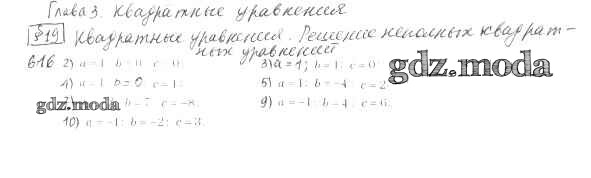 Глава 3. Квадратные уравнения
§19 Квадратные уравнения. Решение неполных квадрат-
ных уравнений
616 2) a=1; b=0; c=0; 3) a=1; b=1; c=0
4) a=1; b=0; c=1; 5) a=1; b=-4; c=2
b=7; c=-8; 9) a=-1; b=4; c=6;
10) a=-1; b=-2; c=3.
gdz.moda
gdz.moda